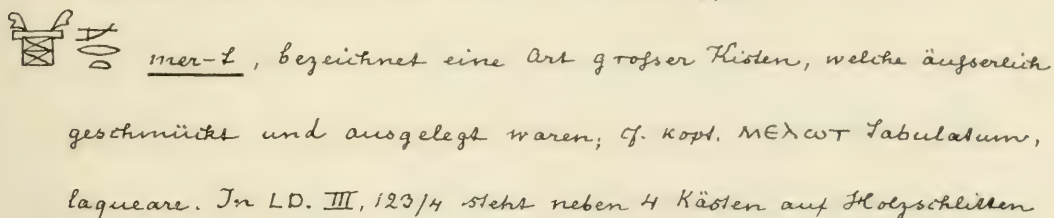 mer-t, bezeichnet eine Art großer Kisten, welche äußerlich
geschmückt und ausgelegt waren; cf. kopt. ⲙⲉⲗⲱⲧ Tabulatum,
laqueare. In LD. III, 123/4 steht neben 4 Kästen auf Holzschlitten